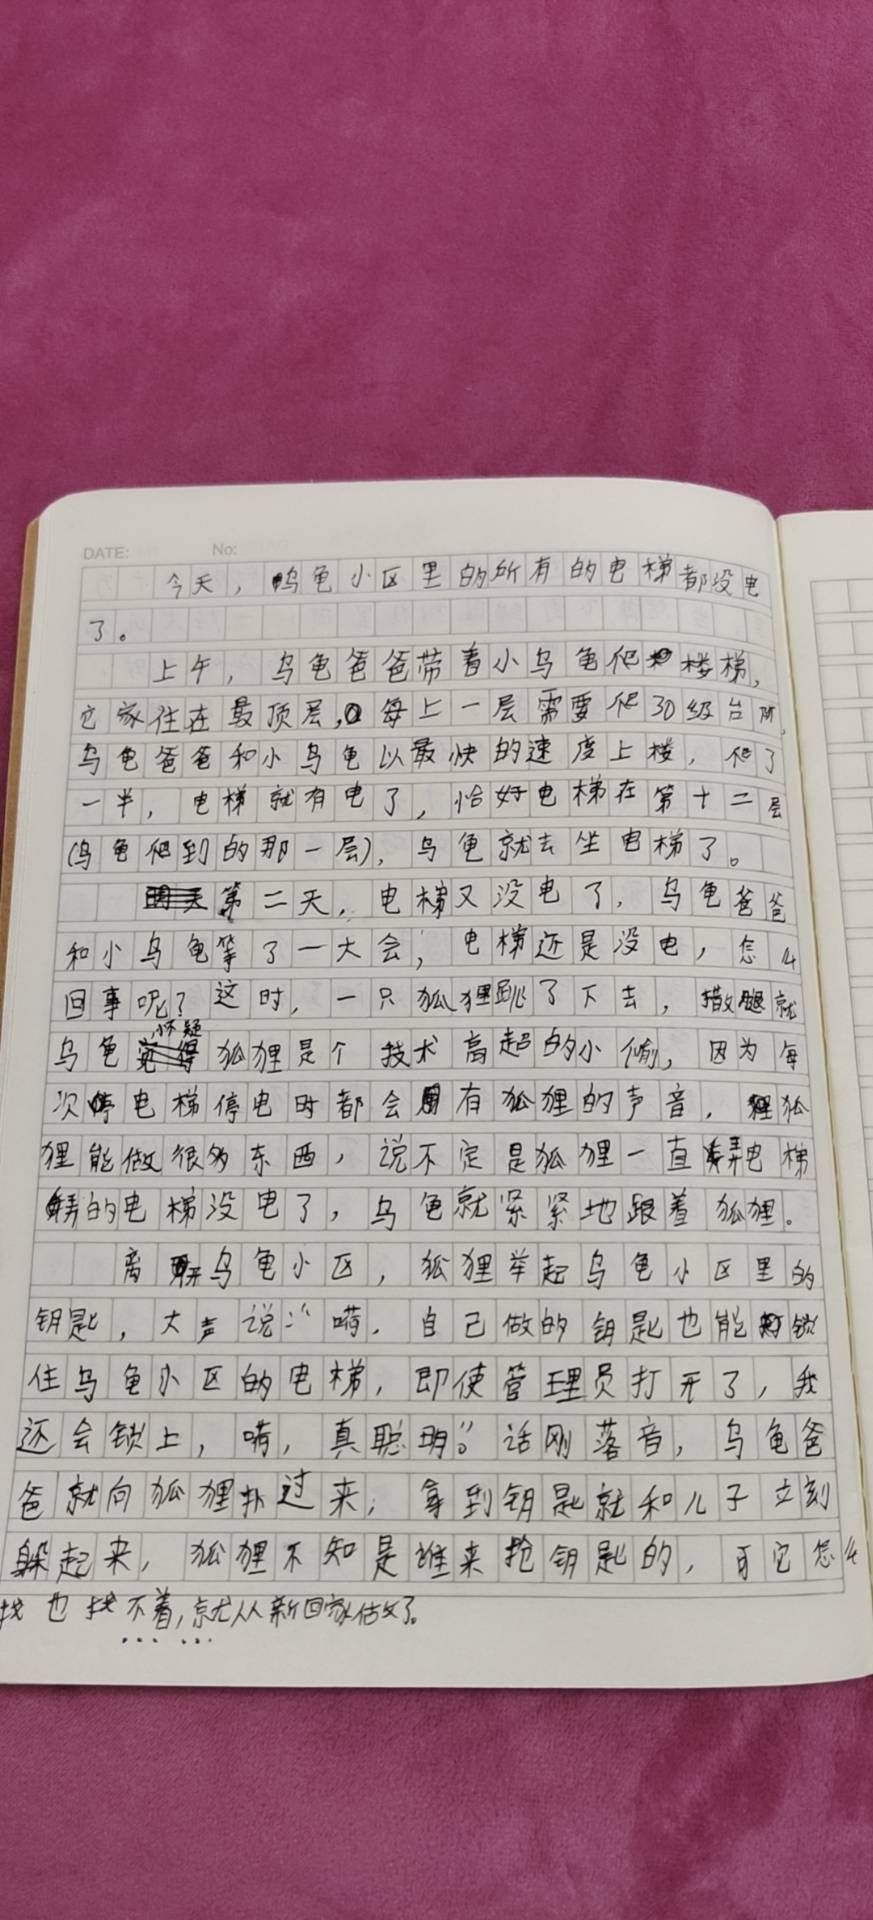 DATE: No:
今天，乌龟小区里的所有的电梯都没电
了。
上午，乌龟爸爸带着小乌龟爬楼梯，
它家住在最顶层，每上一层需要爬30级台阶，
乌龟爸爸和小乌龟以最快的速度上楼，爬了
一半，电梯就有电了，恰好电梯在第十二层
(乌龟爬到的那一层)，乌龟就去坐电梯了。
第二天，电梯又没电了，乌龟爸爸
和小乌龟等了一大会，电梯还是没电，怎么
回事呢？这时，一只狐狸跳了下去，撒腿就
乌龟怀疑狐狸是个技术高超的小偷，因为每
次电梯停电时都会有狐狸的声音，狐
狸能做很多东西，说不定是狐狸一直弄电梯
弄的电梯没电了，乌龟就紧紧地跟着狐狸。
离开乌龟小区，狐狸举起乌龟小区里的
钥匙，大声说：“嗬，自己做的钥匙也能锁
住乌龟小区的电梯，即使管理员打开了，我
还会锁上，嗬，真聪明”。话刚落音，乌龟爸
爸就向狐狸扑过来，拿到钥匙就和儿子立刻
躲起来，狐狸不知是谁来抢钥匙的，可它怎么
找也找不着，就从新回家估文了。